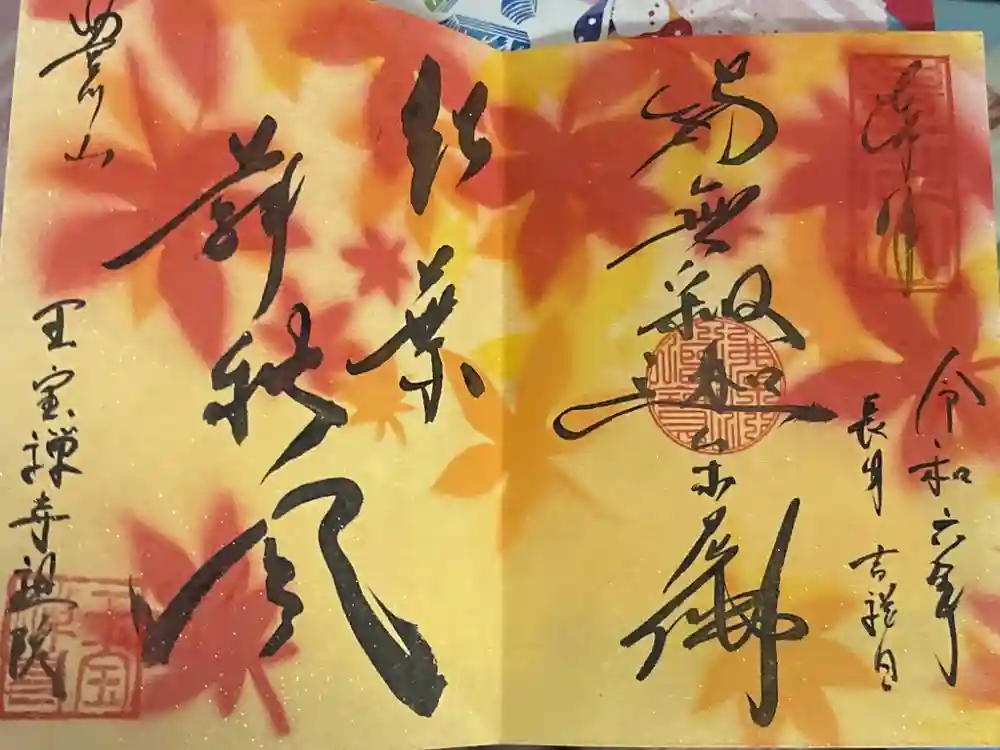 奉拝
令和六年
長月 吉祥日
南無釈迦牟尼佛
紅葉
舞秋風
豊川山
玉宝禅寺